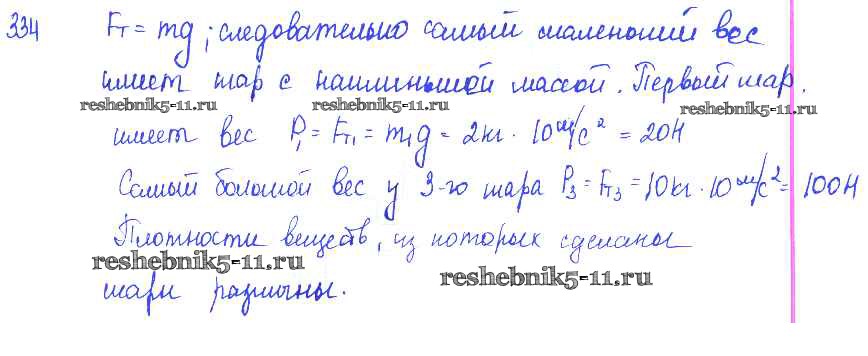 334 Fт = mg; следовательно самый маленький вес
имеет шар с наименьшей массой. Первый шар.
reshebnik5-11.ru reshebnik5-11.ru reshebnik5-11.ru
имеет вес P₁ = Fт₁ = m₁g = 2кг · 10 м/с² = 20Н
Самый большой вес у 3-го шара P₃ = Fт₃ = 10кг · 10 м/с² = 100Н
Плотности веществ, из которых сделаны
reshebnik5-11.ru reshebnik5-11.ru
шары различны.